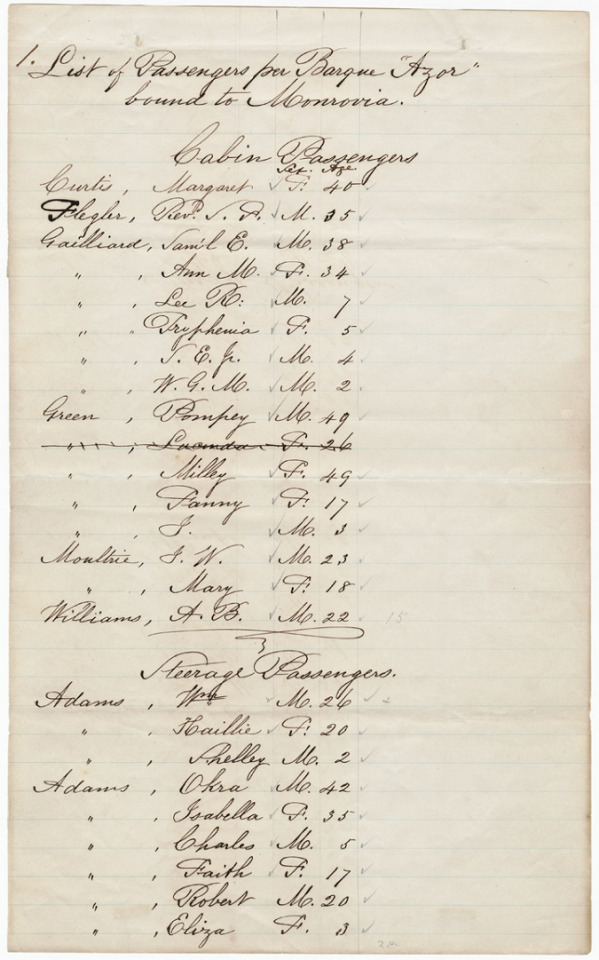 1. List of Passengers per Barque "Azor"
bound to Monrovia.
Cabin Passengers
Sex. Age
Curtis, Margaret F. 40
Flegler, Revd. S. F. M. 35
Gailliard, Sam'l E. M. 38
" , Ann M. F. 34
" , Lee R: M. 7
" " Tryphenia F. 5
" , S. E. Jr. M. 4
" , W. G. M. M. 2
Green , Pompey M. 49
" , Lucinda F. 26
" , Milley F. 49
" , Fanny F. 17
" , J. M. 3
Moultrie, J. W. M. 23
" , Mary F. 18
Williams, A. B. M. 22 15
Steerage Passengers.
Adams , Wm M. 26
" , Haillie F. 20
" , Shelley M. 2
Adams , Okra M. 42
" , Isabella F. 35
" , Charles M. 5
" , Faith F. 17
" , Robert M. 20
" , Eliza F. 3